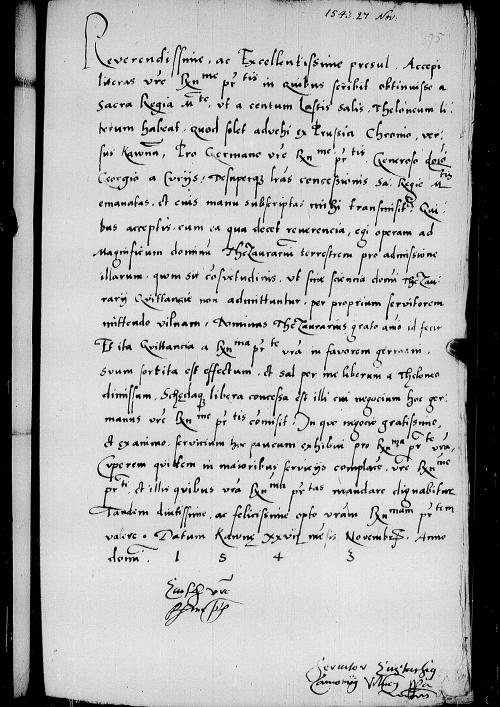 1543. 27 Nov.
95
Reverendissime, ac Excellentissime presul. Accepi
literas vre Rn^me pr^tis in quibus scribit obtinuisse a
Sacra Regia M^te, vt a centum Lastis salis, Theloneum li-
berum habeat, quod solet advehi ex Prussia Chronio, ver-
sus Kawna, Pro Germano vre Rn^me pr^tis, Generoso dno
Georgio a Curijs, Desuperq lras concessionis Sa: Regie M^tis
emanatas, et eius manu subscriptas mihi transmisit, Qui-
bus acceptis, cum ea qua decet reverencia, egi operam ad
Magnificum dominu Thezaurariu terrestrem pro admissione
illarum. quom sit cosvetudinis, vt sine sciencia domi Thezau-
rarij Quittancie non admittuntur, per proprium servitorem
mittendo vilnam, Dominus Thezaurarius grato aio id fecit
Et ita Quittancia a Rn^ma pr^te vra in favorem germani
suum sortita est effectum, et sal per me liberum a Theloneo
dimissum, Schedaq libera concessa est illi cui negocium hoc ger-
manus vre Rn^me pr^tis comisit, In quo negocio gratissime,
et ex animo, servicium hoc parvum exhibui pro Rn^ma pr^te vra,
Cuperem quidem in maioribus servicijs complace, vre Rn^me
pr^ti, et illis quibus vra Rn^ma pr^tas mandare dignabitur
Tandem diutissime, ac felicissime opto vram Rn^mam pr^tem
valere. Datum Kawne xxvij mesis Novembr. Anno
domi. 1 5 4 3
Eiusdem vre
Servitor Eustachig
Canonig Vilneń